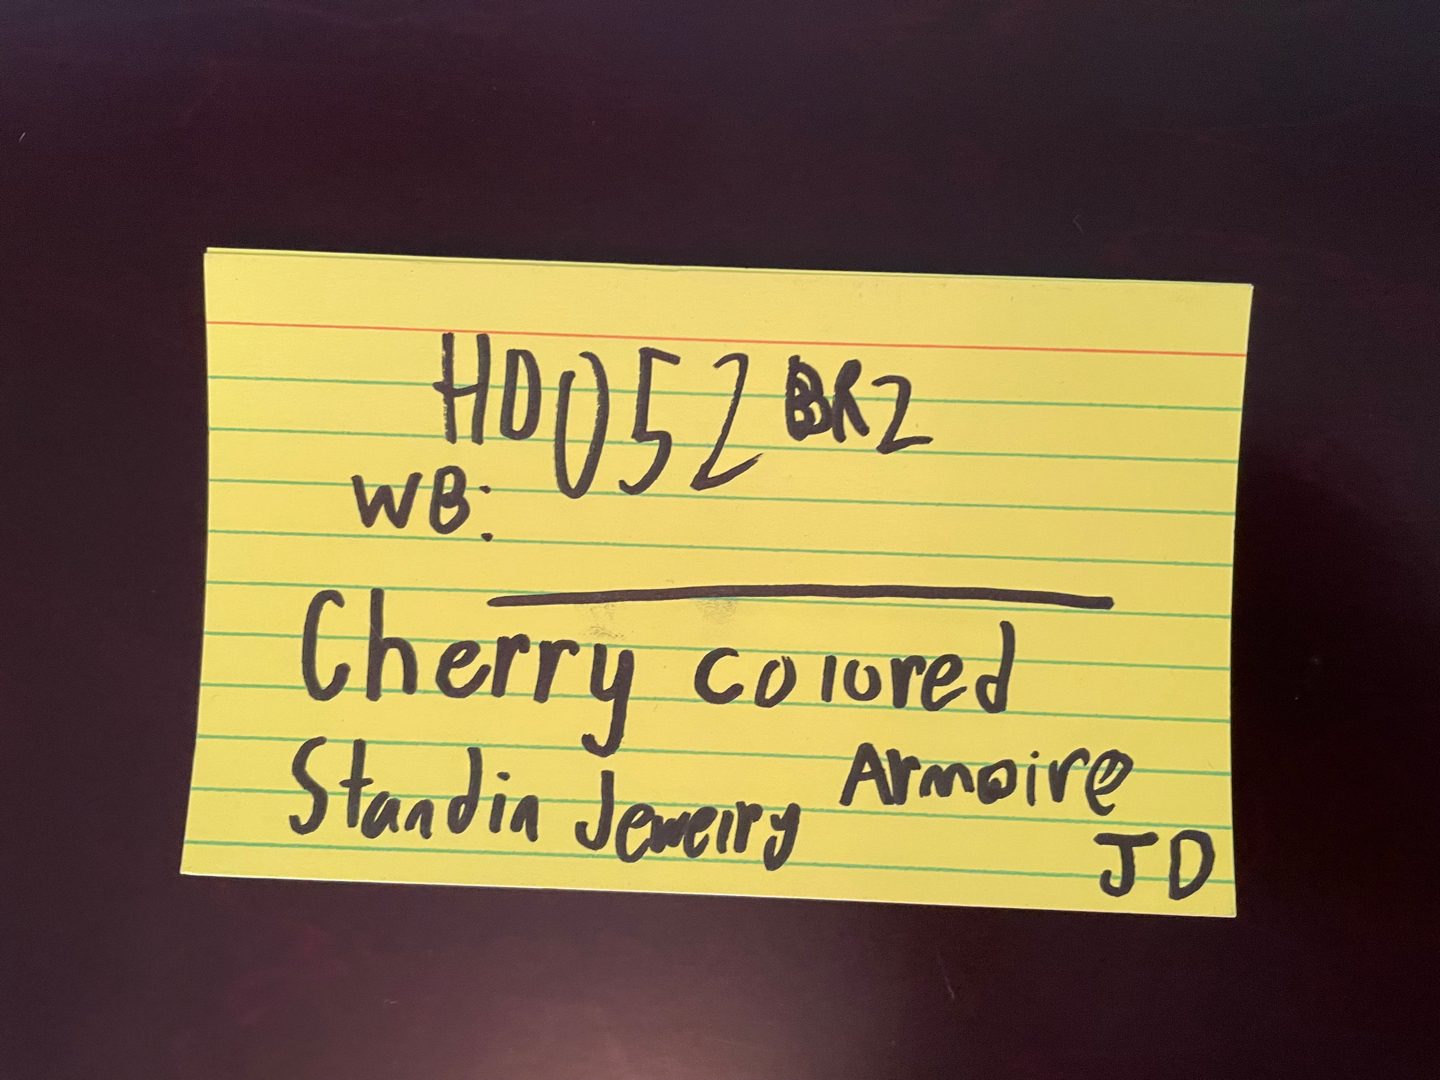 HD052 BR2
WB:
Cherry colored
Standin Jewelry Armoire
JD